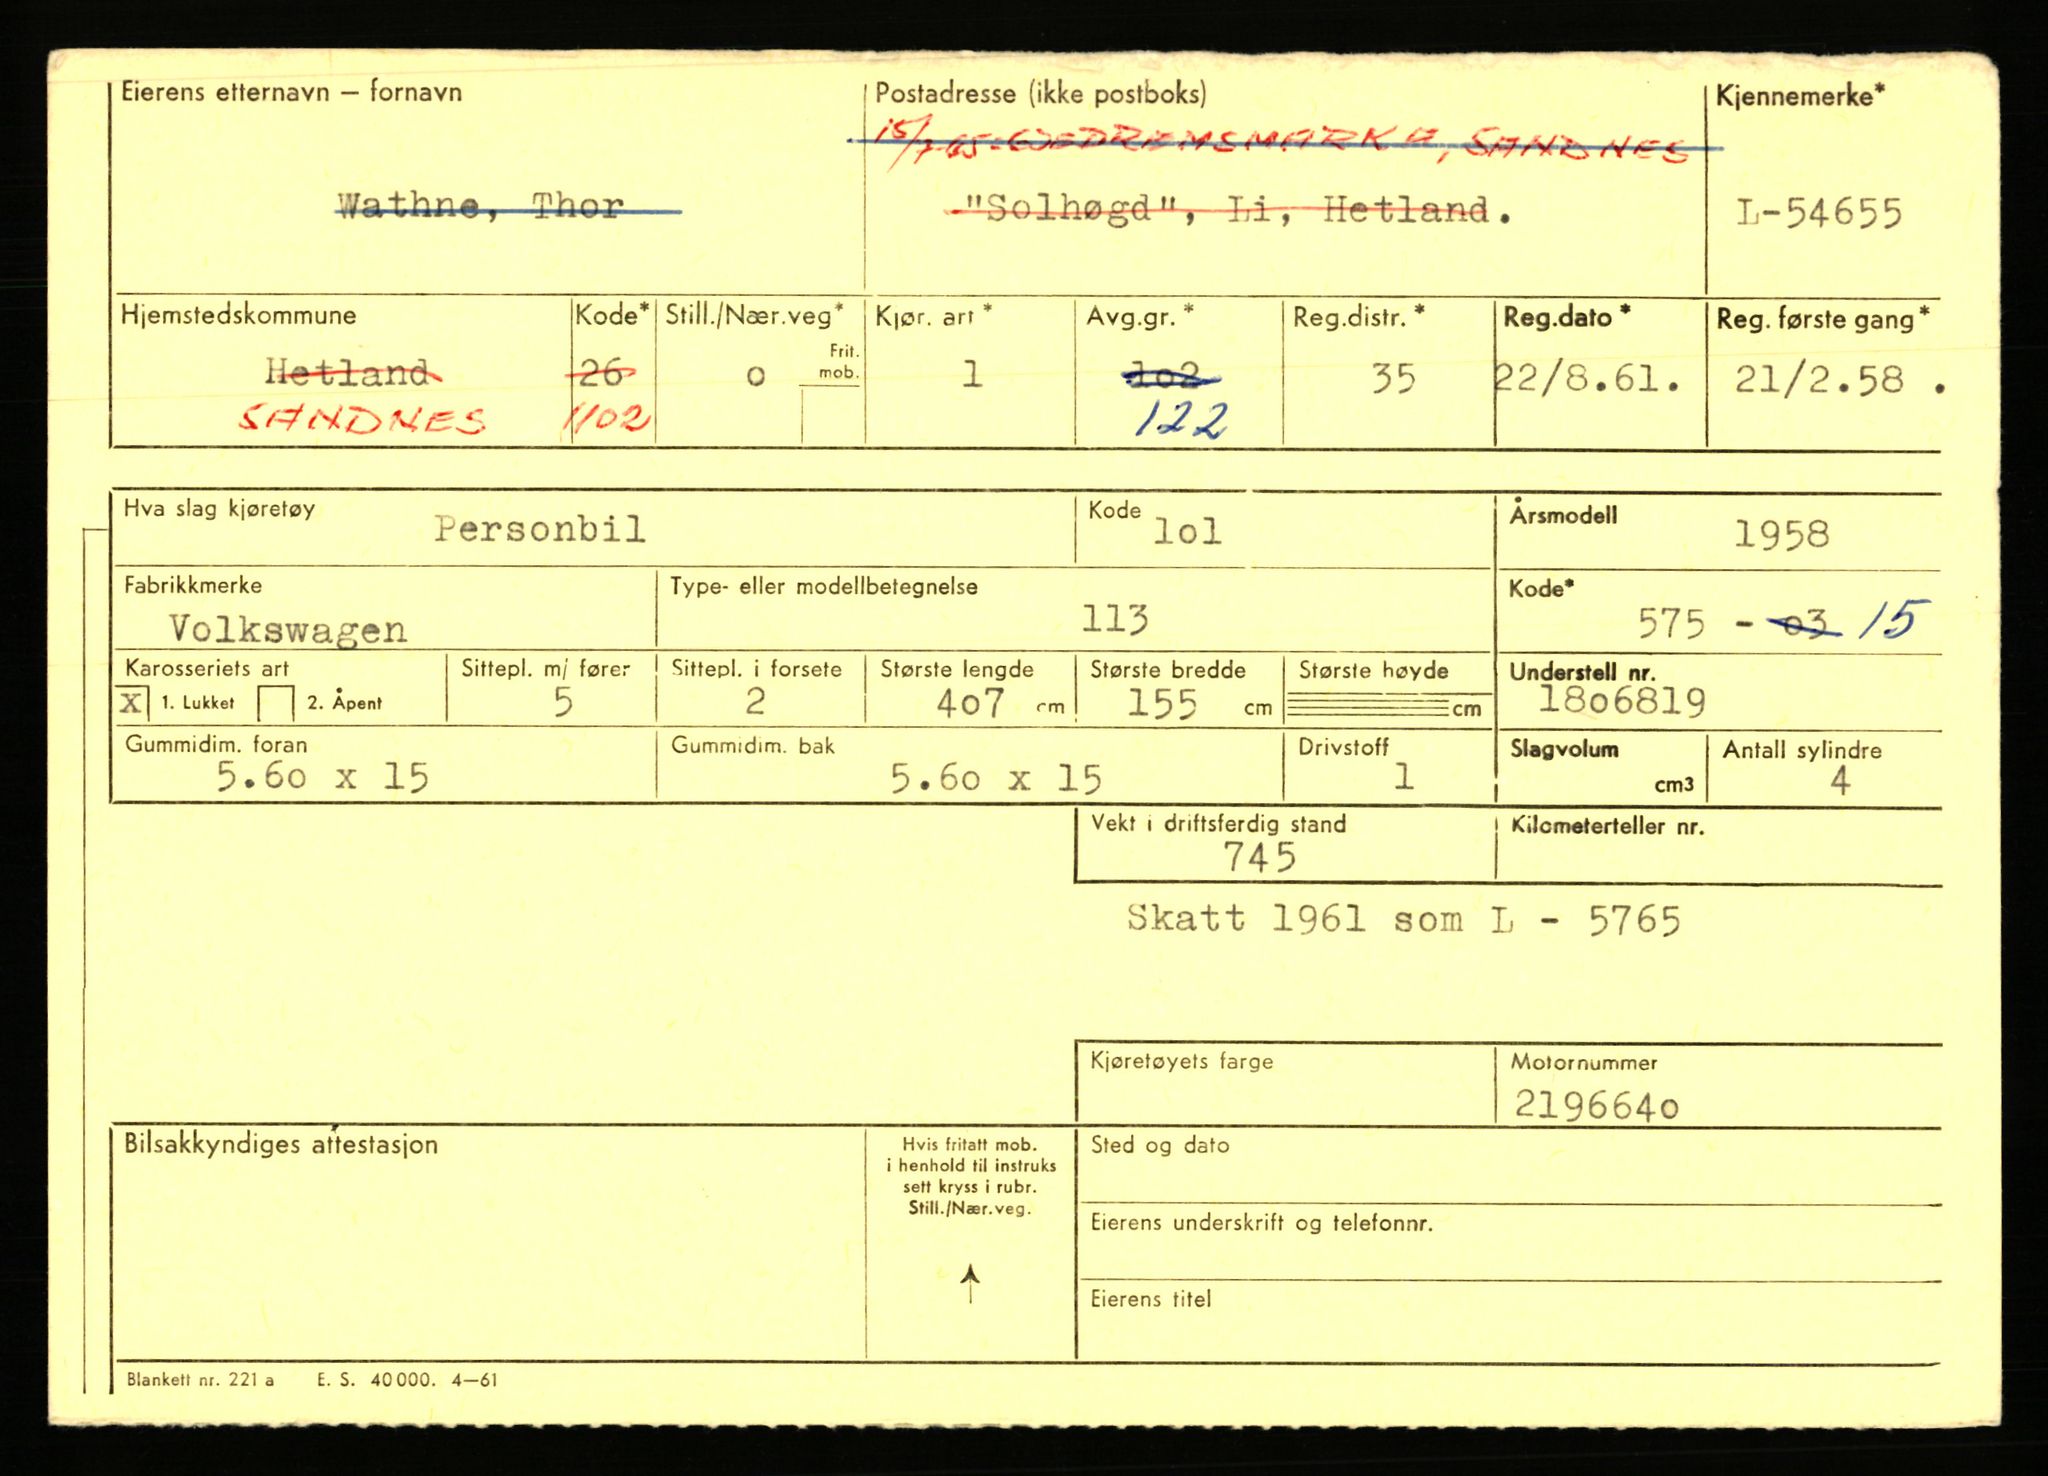 Eierens etternavn – fornavn
Postadresse (ikke postboks)
Kjennemerke*
15/7-65. SANDNES
Wathne, Thor
"Solhøgd", Li, Hetland.
L-54655
Hjemstedskommune
Kode*
Still./Nær.veg*
Kjør. art *
Avg.gr. *
Reg.distr. *
Reg.dato *
Reg. første gang*
Hetland
26
o
Frit. mob.
1
1o2
35
22/8.61.
21/2.58 .
SANDNES
1102
122
Hva slag kjøretøy
Personbil
Kode
1o1
Årsmodell
1958
Fabrikkmerke
Volkswagen
Type- eller modellbetegnelse
113
Kode*
575 - o3 15
Karosseriets art
X 1. Lukket 2. Åpent
Sittepl. m/ fører
5
Sittepl. i forsete
2
Største lengde
4o7 cm
Største bredde
155 cm
Største høyde
cm
Understell nr.
18o6819
Gummidim. foran
5.6o x 15
Gummidim. bak
5.6o x 15
Drivstoff
1
Slagvolum
cm3
Antall sylindre
4
Vekt i driftsferdig stand
745
Kilometerteller nr.
Skatt 1961 som L - 5765
Kjøretøyets farge
Motornummer
219664o
Bilsakkyndiges attestasjon
Hvis fritatt mob.
i henhold til instruks
sett kryss i rubr.
Still./Nær.veg.
Sted og dato
Eierens underskrift og telefonnr.
Eierens titel
Blankett nr. 221 a E. S. 40 000. 4—61